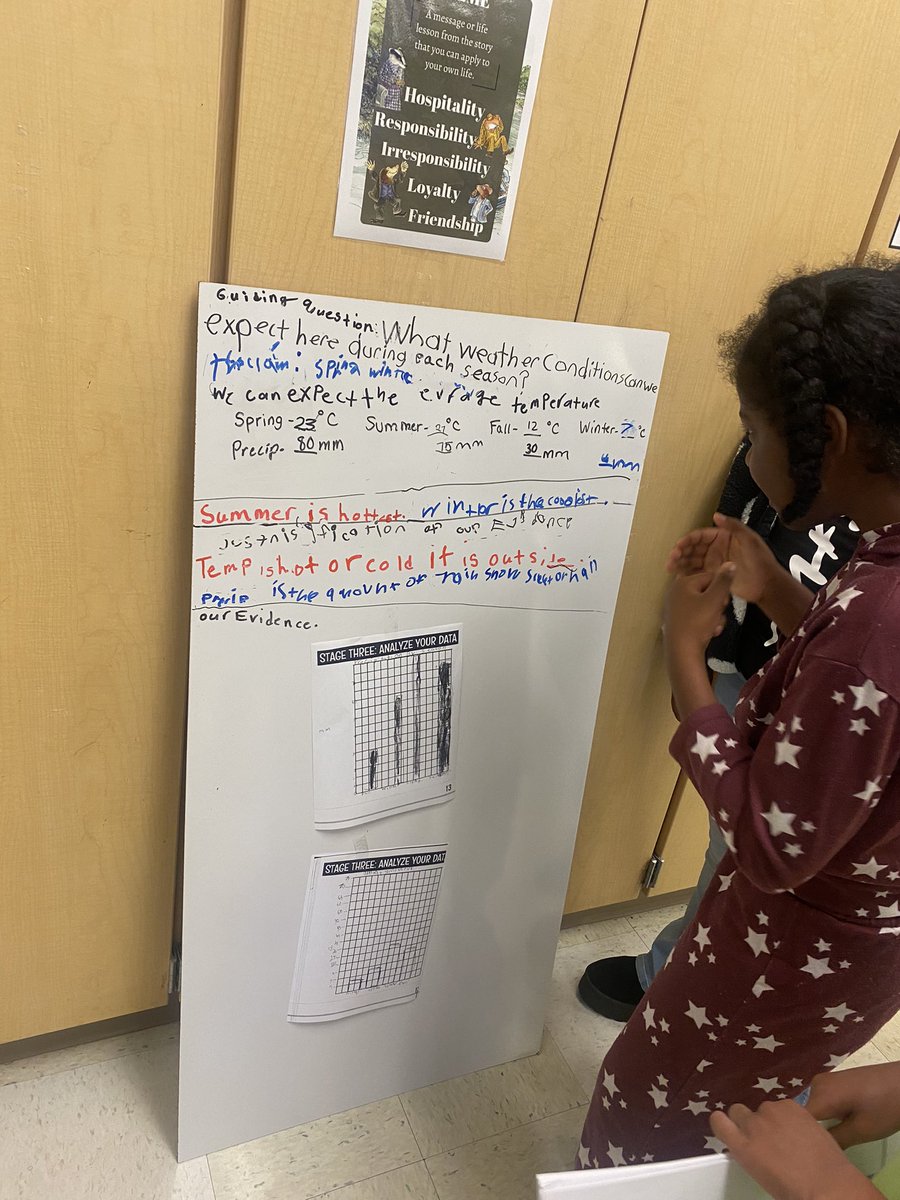 A message or life
lesson from the story
that you can apply to
your own life.
Hospitality
Responsibility
Irresponsibility
Loyalty
Friendship
Guiding Question: What weather Conditions can we
expect here during each season?
spring winte
We can expect the temperature
Spring - 23°C Summer - °C Fall - 12 °C Winter - 7 °C
Precip - 80 mm 15 mm 30 mm mm
Summer is hottest. Wintor is the coolest
OF our
Temp is hot or cold it is outside
is the amount of rain snow
our Evidence.
STAGE THREE: ANALYZE YOUR DATA
13
STAGE THREE: ANALYZE YOUR DAT